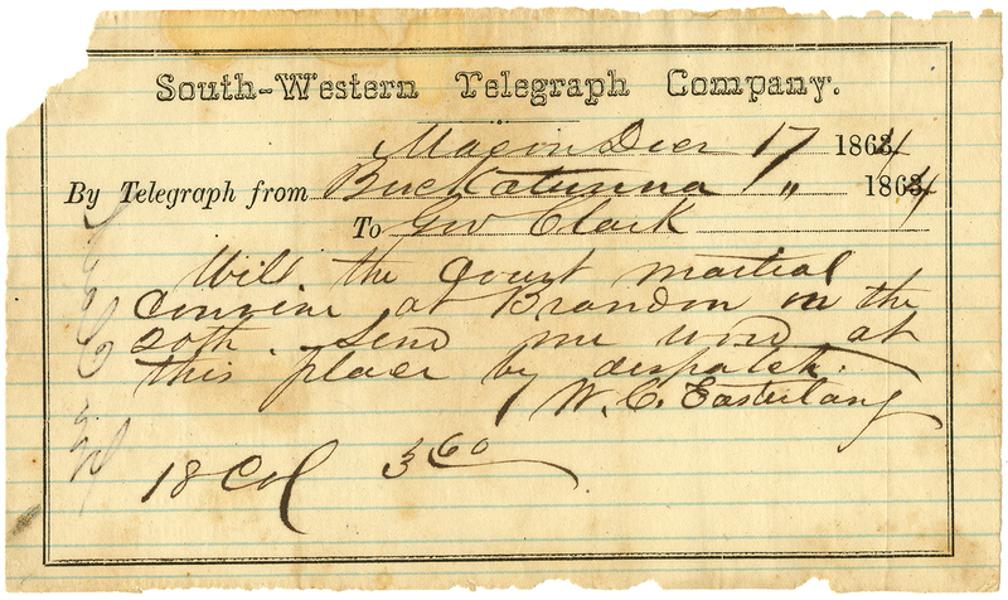 South-Western Telegraph Company.
Macon Decr 17 1864
By Telegraph from Buckatunna 17 " 1864
To Gov Clark
Will the Court martial
convene at Brandon on the
20th. Send me word at
this place by despatch.
W. C. Easterlang
18 Col 3 60